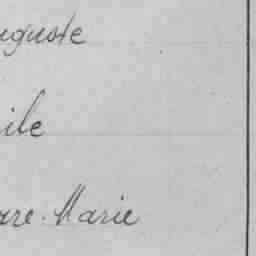 uguste
ile
rre-Marie